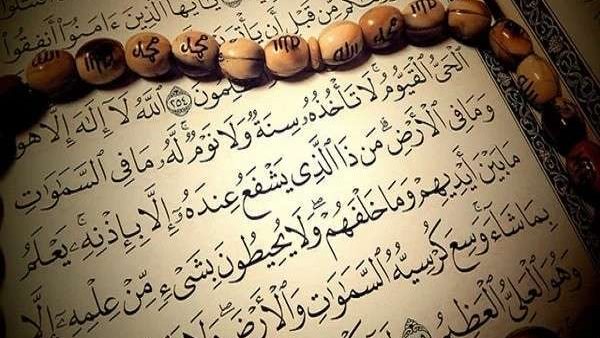 يَٰٓأَيُّهَا ٱلَّذِينَ ءَامَنُوٓا۟ أَنفِقُوا۟
مِن قَبْلِ أَن
الله محمد محمد الله محمد
لِمُونَ ٢٥٤ ٱللَّهُ لَآ إِلَٰهَ إِلَّا هُوَ
ٱلْحَىُّ ٱلْقَيُّومُ ۚ لَا تَأْخُذُهُۥ سِنَةٌ وَلَا نَوْمٌ ۚ لَّهُۥ مَا فِى ٱلسَّمَٰوَٰتِ
وَمَا فِى ٱلْأَرْضِ ۗ مَن ذَا ٱلَّذِى يَشْفَعُ عِندَهُۥٓ إِلَّا بِإِذْنِهِۦ ۚ يَعْلَمُ
مَا بَيْنَ أَيْدِيهِمْ وَمَا خَلْفَهُمْ ۖ وَلَا يُحِيطُونَ بِشَىْءٍ مِّنْ عِلْمِهِۦٓ إِلَّا
بِمَا شَآءَ ۚ وَسِعَ كُرْسِيُّهُ ٱلسَّمَٰوَٰتِ وَٱلْأَرْضَ ۖ وَلَا
وَهُوَ ٱلْعَلِىُّ ٱلْعَظِيمُ